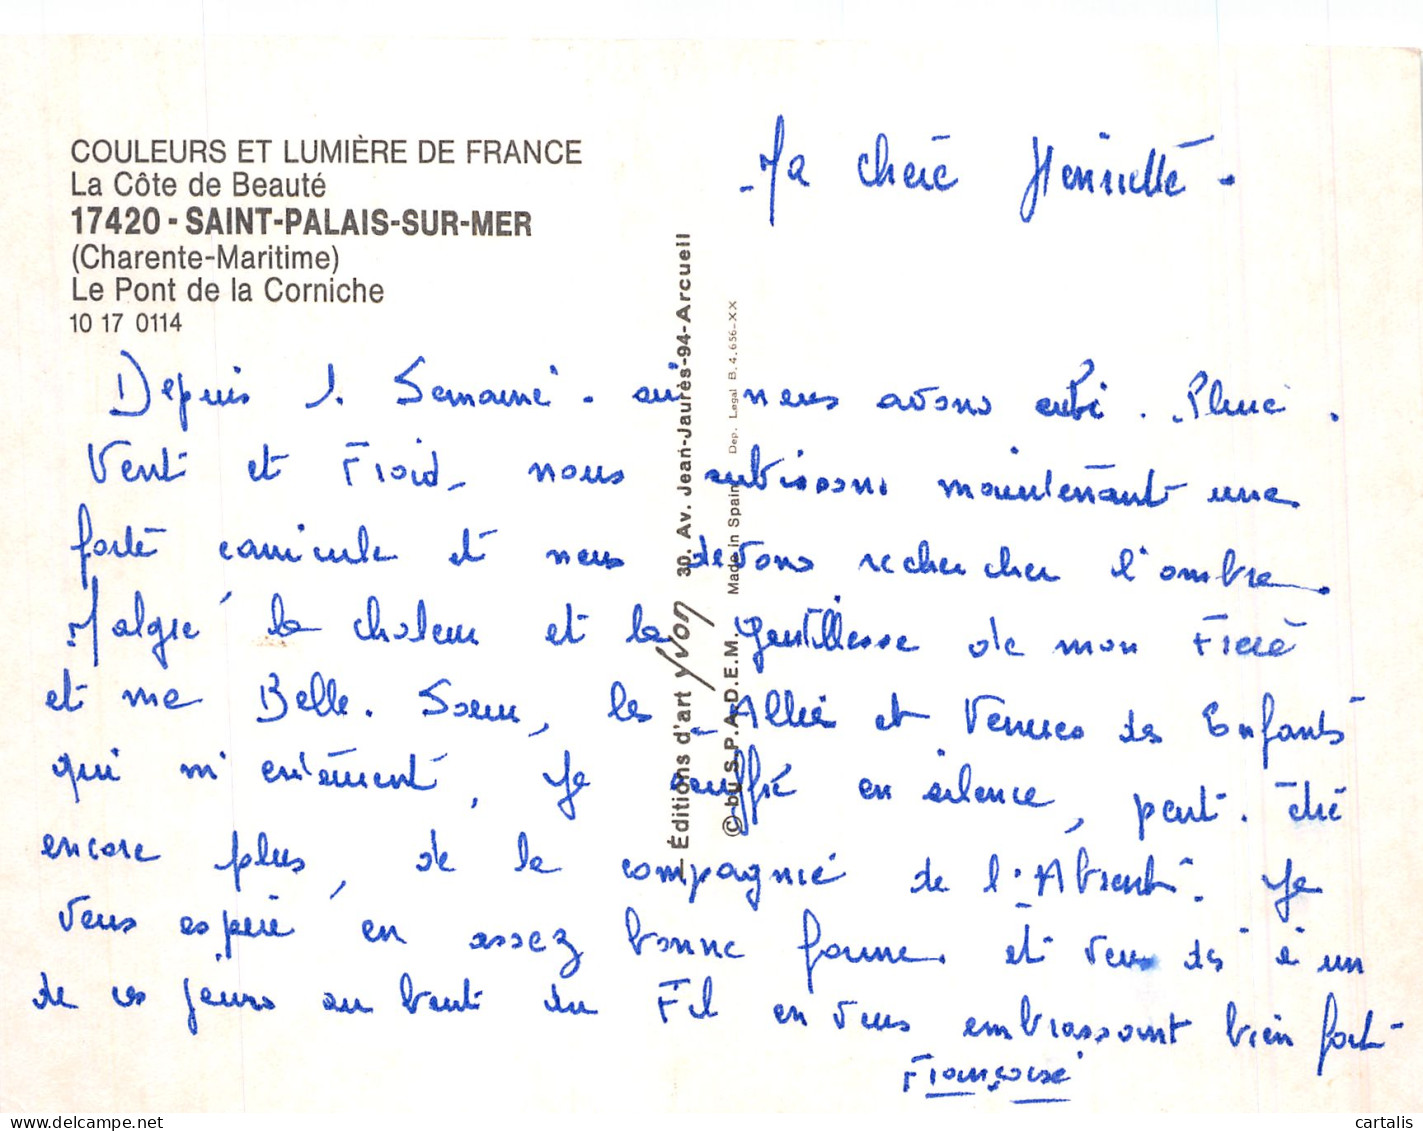 COULEURS ET LUMIÈRE DE FRANCE
La Côte de Beauté
17420 - SAINT-PALAIS-SUR-MER
(Charente-Maritime)
Le Pont de la Corniche
10 17 0114
Éditions d'art YVON 30. Av. Jean-Jaurès-94-Arcueil
© bu S.P.A.D.E.M. Made in Spain Dep. Legal B. 4.656-XX
- Ma chère Henriette -
Depuis 1. Semaine - où nous avons subi. Pluie.
Vent et Froid, nous subissons maintenant une
forte canicule et nous devons rechercher l'ombre.
Malgré la chaleur et la gentillesse de mon Frère
et ma Belle. Soeur, les Allées et Venues des Enfants
qui m'entourent, je souffre en silence, peut. être
encore plus, de la compagnie de l'Absent. Je
vous espère en assez bonne forme. et vous dis à un
de ces jours au bout du Fil en vous embrassant bien fort
Françoise
cartalis
delcampe.net